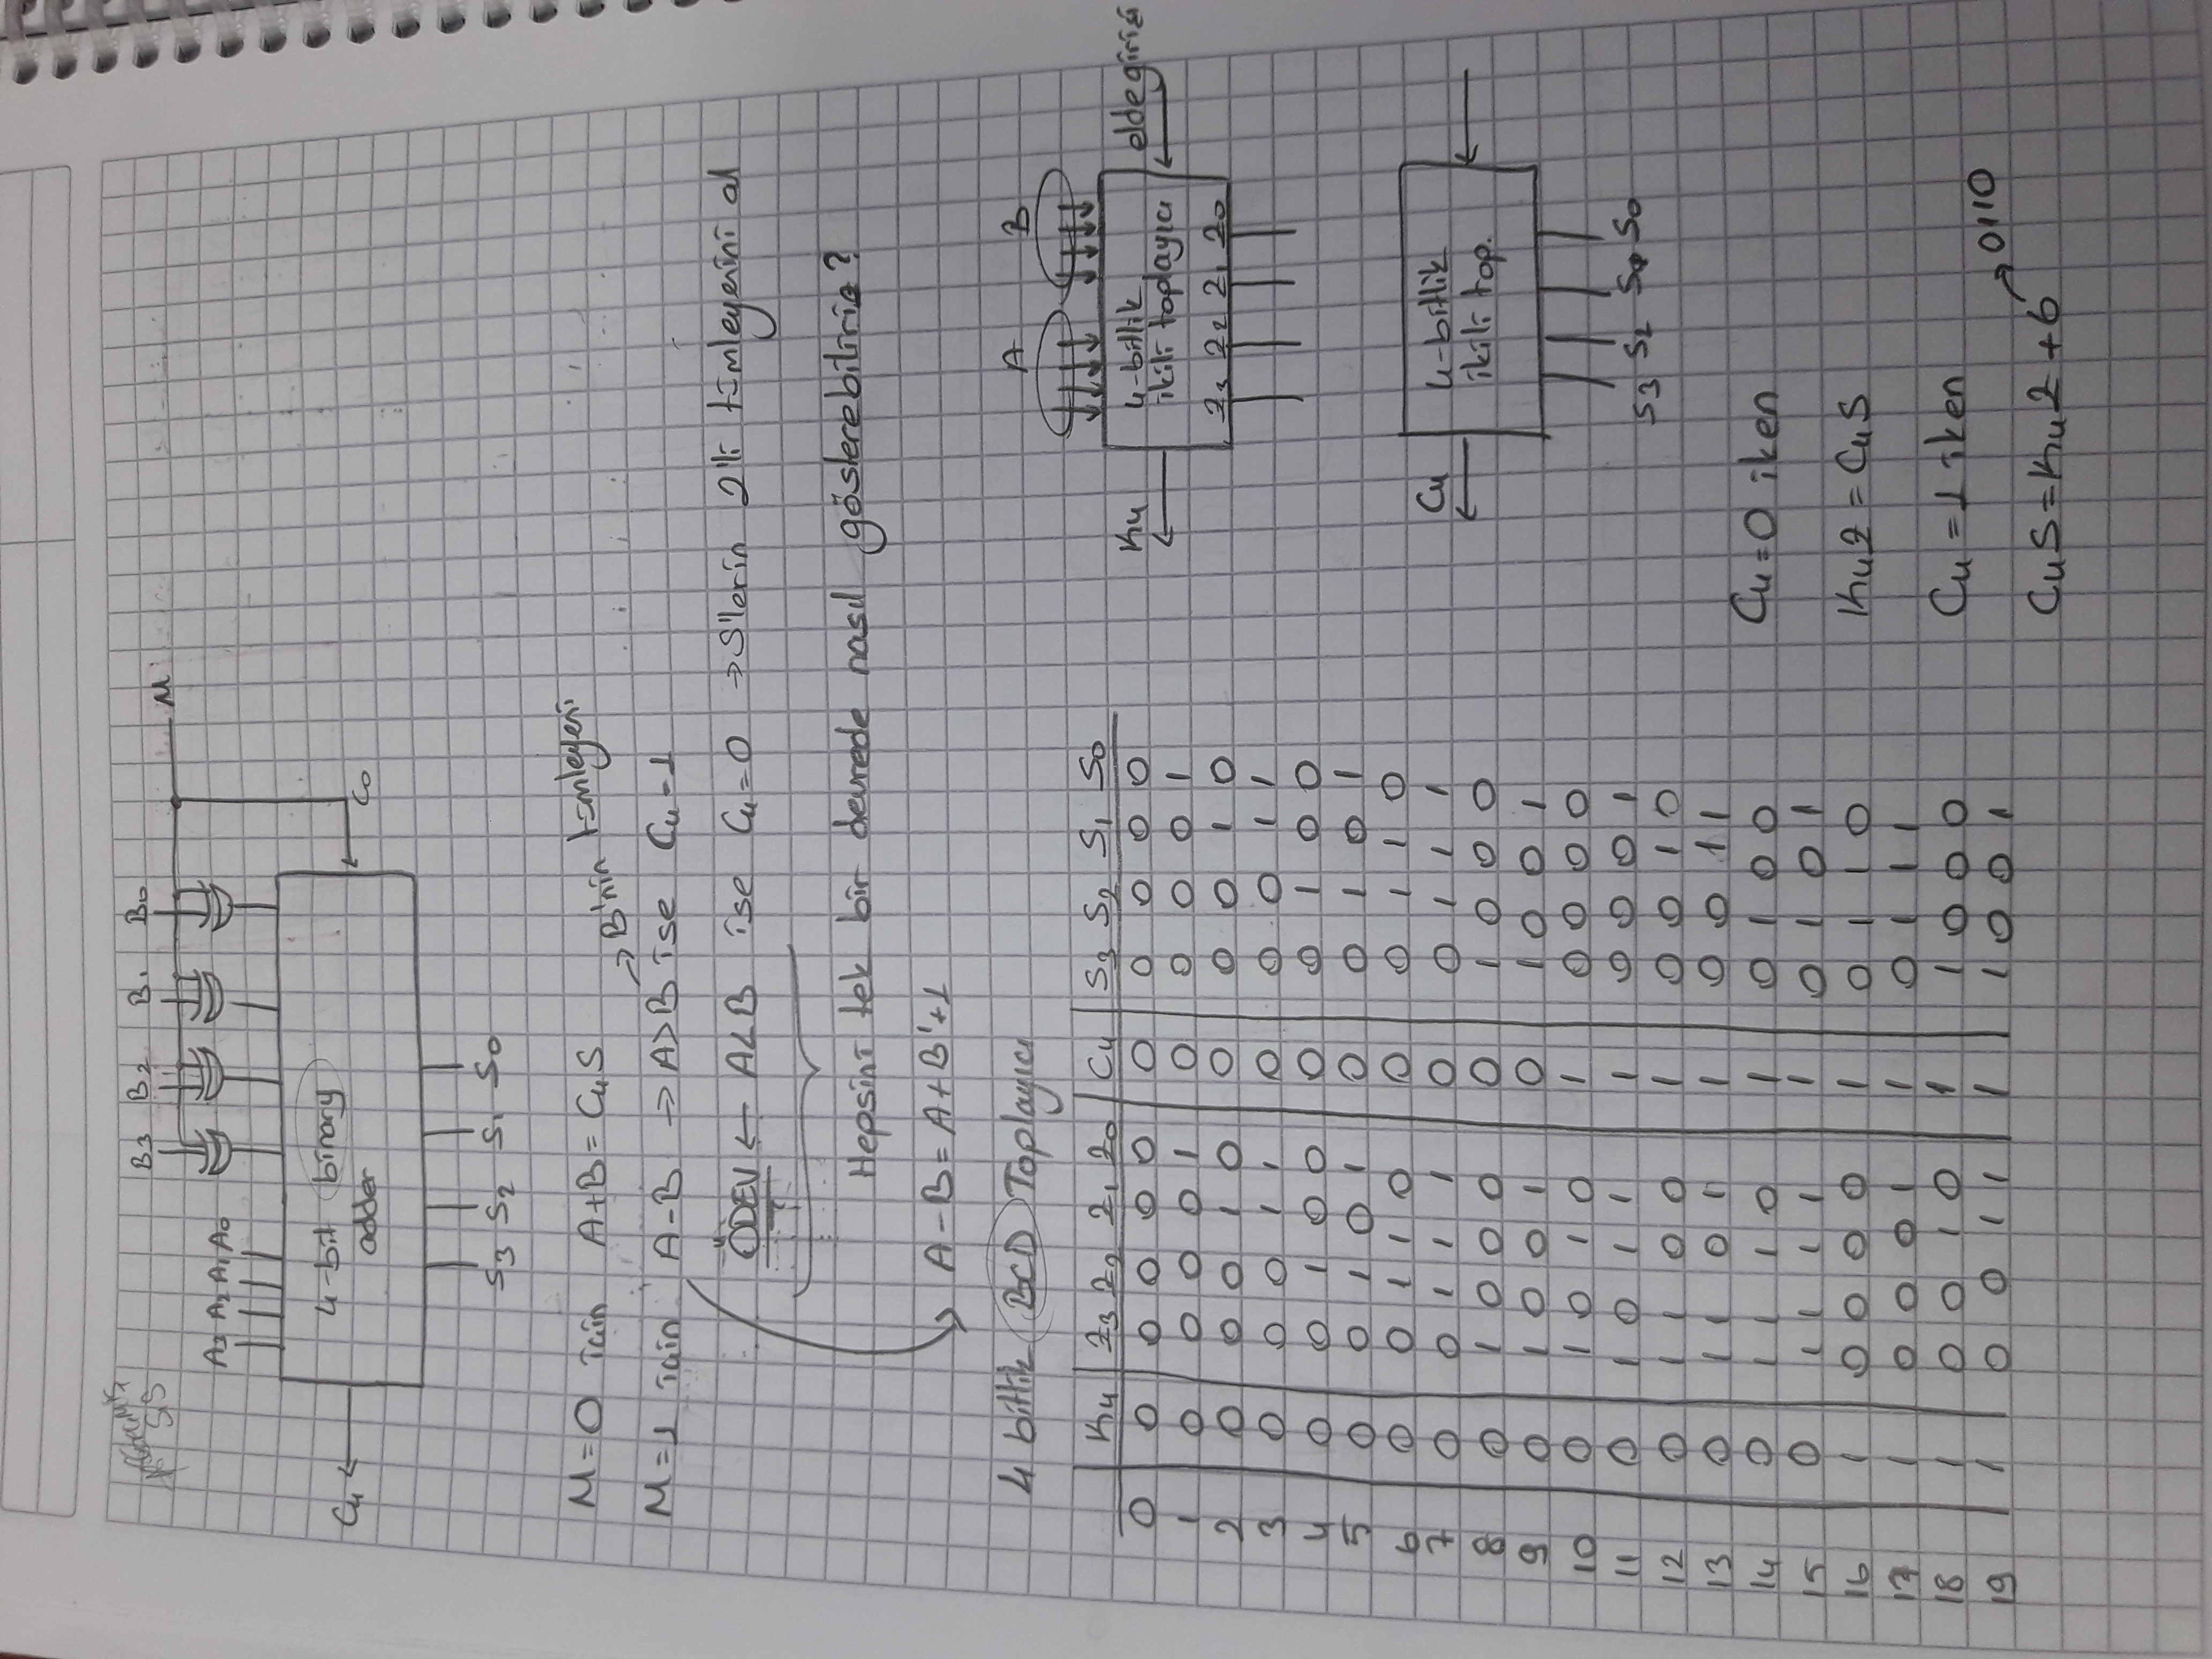 B3 B2 B1 B0
M
A3 A2 A1 A0
4-bit binary
adder
C4
C0
S3 S2 S1 S0
M=0 için A+B = C4S
→ B'nin tümleyeni
M=1 için A-B → A>B ise C4=1
ÖDEV ← A<B ise C4=0 → S'lerin 2'li tümleyenini al
Hepsini tek bir devrede nasıl gösterebiliriz?
A-B = A+B'+1
4 bitlik BCD Toplayıcı
K4 Z3 Z2 Z1 Z0 C4 S3 S2 S1 S0
0 0 0 0 0 0 0 0 0 0 0
1 0 0 0 0 1 0 0 0 0 1
2 0 0 0 1 0 0 0 0 1 0
3 0 0 0 1 1 0 0 0 1 1
4 0 0 1 0 0 0 0 1 0 0
5 0 0 1 0 1 0 0 1 0 1
6 0 0 1 1 0 0 0 1 1 0
7 0 0 1 1 1 0 0 1 1 1
8 0 1 0 0 0 0 1 0 0 0
9 0 1 0 0 1 0 1 0 0 1
10 0 1 0 1 0 1 0 0 0 0
11 0 1 0 1 1 1 0 0 0 1
12 0 1 1 0 0 1 0 0 1 0
13 0 1 1 0 1 1 0 0 1 1
14 0 1 1 1 0 1 0 1 0 0
15 0 1 1 1 1 1 0 1 0 1
16 1 0 0 0 0 1 0 1 1 0
17 1 0 0 0 1 1 0 1 1 1
18 1 0 0 1 0 1 1 0 0 0
19 1 0 0 1 1 1 1 0 0 1
A B
K4
4-bitlik
ikili toplayıcı
elde girişi
Z3 Z2 Z1 Z0
C4
4-bitlik
ikili top.
S3 S2 S1 S0
C4=0 iken
K4Z = C4S
C4=1 iken
→ 0110
C4S = K4Z + 6